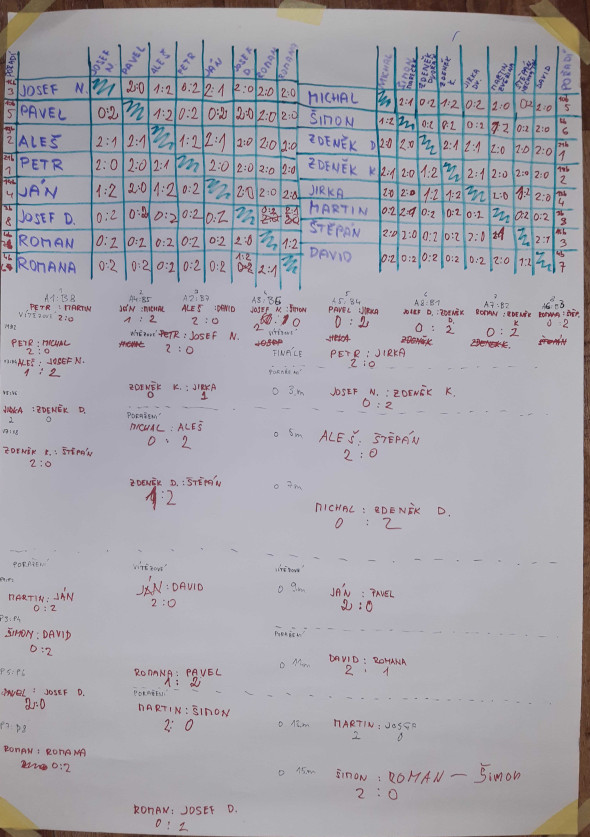 POŘADÍ JOSEF N. PAVEL ALEŠ PETR JÁN JOSEF D. ROMAN ROMANA
3 JOSEF N. 2:0 1:2 0:2 2:1 2:0 2:0 2:0
5 PAVEL 0:2 1:2 0:2 0:2 2:0 2:0 2:0
2 ALEŠ 2:1 2:1 1:2 2:1 2:0 2:0 2:0
1 PETR 2:0 2:0 2:1 2:0 2:0 2:0 2:0
4 JÁN 1:2 2:0 1:2 0:2 2:0 2:0 2:0
8 JOSEF D. 0:2 0:2 0:2 0:2 0:2
ROMAN 0:2 0:2 0:2 0:2 0:2 2:0 1:2
ROMANA 0:2 0:2 0:2 0:2 0:2 1:2 2:1
MICHAL ŠIMON ZDENĚK ZDENĚK JIRKA MARTIN ŠTĚPÁN DAVID POŘADÍ
MICHAL 2:1 0:2 1:2 0:2 2:0 0:2 2:0 5
ŠIMON 1:2 0:2 0:2 0:2 0:2 2:0 6
ZDENĚK D. 2:0 2:0 2:1 2:1 2:0 2:0 2:0 1
ZDENĚK K. 2:1 2:0 1:2 2:1 2:0 2:0 2:0 2
JIRKA 2:0 2:0 1:2 1:2 2:0 1:2 2:0 4
MARTIN 0:2 2:1 0:2 0:2 0:2 0:2 0:2
ŠTĚPÁN 2:0 2:0 0:2 0:2 2:1 3
DAVID 0:2 0:2 0:2 0:2 0:2 2:0 1:2 7
A1:B8
PETR : MARTIN
VÍTĚZOVÉ 2:0
A4:B5
JÁN : MICHAL
1 : 2
A2:B7
ALEŠ : DAVID
2 : 0
A3:B6
JOSEF N. : ŠIMON
A5:B4
PAVEL : JIRKA
0 : 2
A8:B1
JOSEF D. : ZDENĚK D.
0 : 2
A7:B2
ROMAN : ZDENĚK K
0 : 2
ROMANA : ŠTĚP.
0 : 2
PETR : MICHAL
2 : 0
VÍTĚZOVÉ
PETR : JOSEF N.
2 : 0
FINÁLE
PETR : JIRKA
2:0
ALEŠ : JOSEF N.
1 : 2
PORAŽENÍ
ZDENĚK K. : JIRKA
0 1
O 3.m
JOSEF N. : ZDENĚK K.
0 : 2
JIRKA : ZDENĚK D.
2 0
PORAŽENÍ
MICHAL : ALEŠ
0 : 2
O 5m
ALEŠ : ŠTĚPÁN
2 : 0
ZDENĚK K. : ŠTĚPÁN
2:0
ZDENĚK D. : ŠTĚPÁN
1:2
O 7m
MICHAL : ZDENĚK D.
0 : 2
PORAŽENÍ
MARTIN : JÁN
0 : 2
VÍTĚZOVÉ
JÁN : DAVID
2 : 0
VÍTĚZOVÉ
O 9m
JÁN : PAVEL
2 : 0
P3:P4
ŠIMON : DAVID
0:2
PORAŽENÍ
O 11m
DAVID : ROMANA
2 : 1
P5:P6
PAVEL : JOSEF D.
2:0
ROMANA : PAVEL
1 : 2
PORAŽENÍ
MARTIN : ŠIMON
2: 0
MARTIN : JOSEF
2 0
ROMAN : ROMANA
0:2
O 15m
ŠIMON : ROMAN — ŠIMON
2 : 0
ROMAN : JOSEF D.
0 : 2